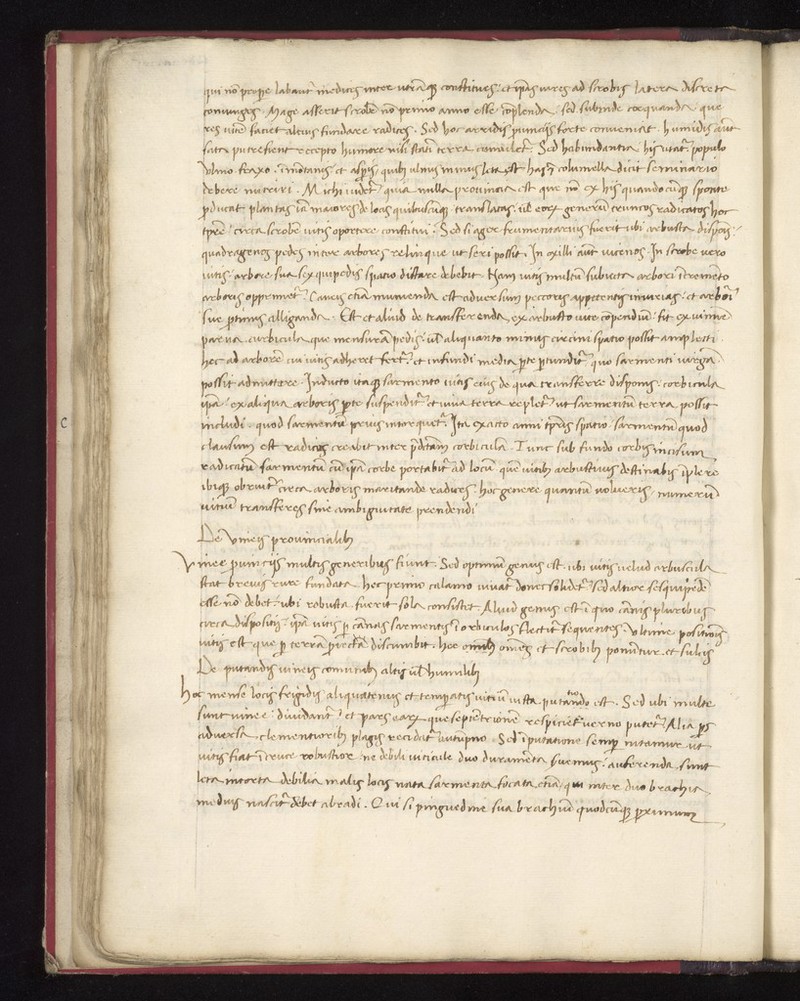 qui nō prope labant' medices inter utrāq3 constitues: et ipās uites ad scrobis latera discreta
coniunges. Mago asserit scrobē nō primo anno esse cōplendā, sed subinde coequandā que
res uitē faciet altius fundare radices. Sed hoc arridis puinciis forte conueniat. humidis aūt
sata putrescunt recepto humore nisi statī terra cumulet'. Sed habundantia his utat' populo
Vlmo fraxo. ī mōtanis et aspis quib; ulmus minus leta est has n̄ columella dicit seminario
debere nutriri. Michi uidet' quia nulla prouincia est que nō ex his quandocūq3 sponte
p̄ducat plantas iā maiores de locis quibuscūq3 translatas: ul' eorȝ generū truncos radicatos hoc
tpr̄e circa scrobē uitis oportere constitui. Sed si ager frumentarius fuerit ubi arbusta dispōis:
quadragenos pedes inter arbores relinque ut seri possit. In exilli aūt uicenos. In scrobe uero
uitis arbore sua sexquipedis spatio distare debebit. Nam uitis multū subiecta arbori īcremēto
arboris opprimet'. Caueis etiā munienda est aduersum peccoris appetentis iniurias: et arbori
sue p̄tinus alliganda. Est et aliud de transferenda ex arbusto uite cōpendiū. fit ex uimine
parua curbicula que mensurā pedis: ul' aliquanto minus circini spatio possit amplecti.
hec ad arborē cui uitis adheret fert': et infundi media p̄te p̄tundit' quo sarmenti uirgā
possit admittere. Inducto itaq3 sarmento uitis eius de qua transferre disponis: corbicula
ip̄a ex aliqua arboris p̄te suspendit' et uiua terra replet' ut sarmentū terra possit
includi. quod sarmentū prius intorquet'. Ita exacto anni tp̄ris spatio sarmentū quod
clausum est radices creabit inter p̄dictam corbiculā. Tunc sub fundo corbis incisum
radicatū sarmentū cū ip̄a corbe portabit' ad locū quē uitib; arbustiuis destinabis īplere
ibiq3 obruit' circa arboris maritande radices. hoc genere quantū uolueris numerū
uitium transferes sine ambiguitate prendendi
De Vineis prouincialib;
Vinee puinciis multis generibus fiunt. Sed optimū genus est ubi uitis uelud arbuscula
stat breui crure fundata. hec primo calamo iuuat' donec solidet' sed altior sesquipede
esse nō debet: ubi robusta fuerit sola consistet. Aliud genus est ī quo cānis pluribus
circa dispositis: ip̄a uitis p̄ cānas sarmentis ī orbiculos flectit' sequentes. Vltime positiōis
uitis est que p̄ terrā p̄iecta discumbit. hec omnib; omēs et scrobib; ponunt̄ur et sulcis
De putandis uineis comunib; altis ul' humilib;
Hoc mense locis frigidis aliquatenus et temperatis uitiū iusta putatio est. Sed ubi multe
sunt uinee diuidant' et pars earȝ que septētrionē respiciet uerno putet'. Alia p̄s
aduersa clementiorib; plagis recidit' autūpno. Sed ī putatione semp̄ nitamur ut
uitis fiat ī crure robustior ne debili uiticule duo duramēta seruemus: auferenda sunt
lata intorta debilia malis locis nata sarmenta focata etiā qui inter duo brachia
medius nascit' debet abradi. Qui si pinguedine sua brachiū quodcūq3 proximum